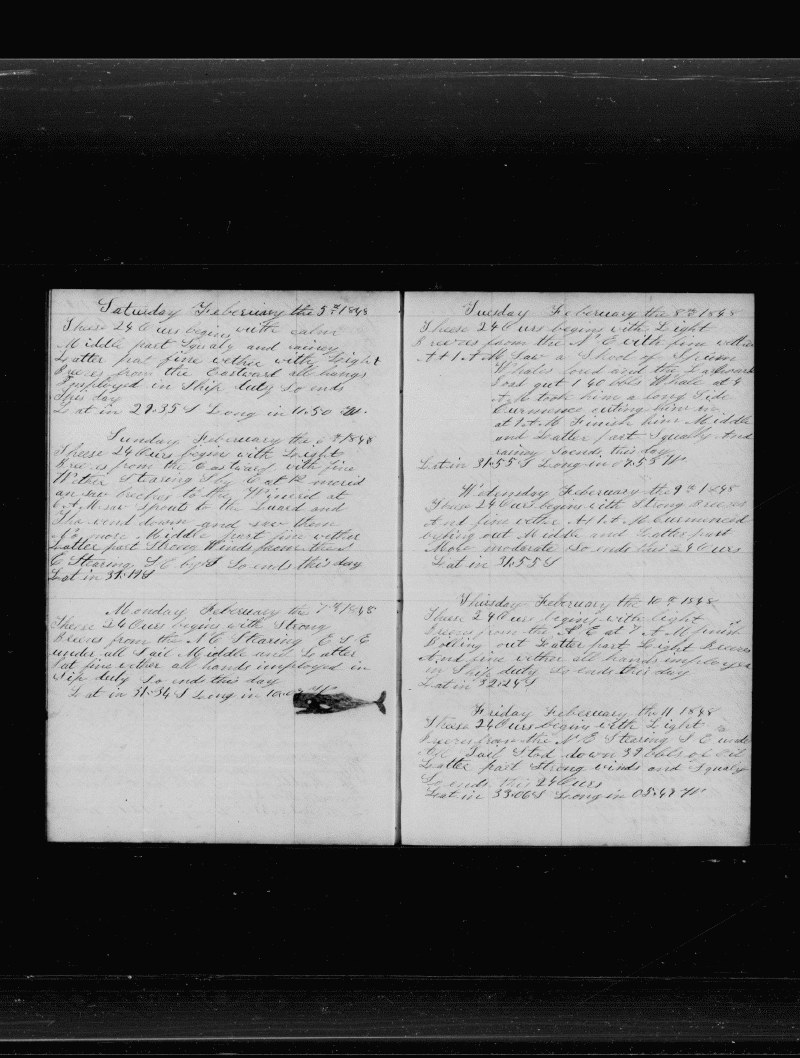 Saturday Feberuary the 5th 1848
These 24 Ours begins with calm
Middle part Squaly and rainey
Latter prat fine wether with Light
Breezes from the Eastward all hangs
Imployed in Ship duty So ends
This day
Lat in 29.35 S Long in 11.50 W.
Sunday Feberuary the 6th 1848
These 24 Ours begins with Light
Breezes from the Eastward with fine
Wether Stearing S by E at
an saw to the Winerd at
6 A.M. saw Spouts to the Luard and
down and saw them
No more Middle Part fine wether
Latter part Strong Winds from the
E Stearing S E by S So ends this day
Lat in S
Monday Feberuary the 7th 1848
These 24 Ours begins with Strong
Breezes from the N E Stearing E S E
under all Sail Middle and Latter
Pat fine wether all hands imployed in
Sip duty So ends this day
Lat in 31.34 S Long in W
Tuesday Feberuary the 8th 1848
These 24 Ours begins with Light
Breezes from the N E with fine wether
At 1 A M Saw a Shool of Spirm
Whales Lored and the Larboard
Boat gut 1 40 bbls Whale at 4
A.M. took him a long Side
Curmence cuting him in
at 1 A.M Finish him Middle
and Latter part Squally And
rainey So ends this day
Lat in 31.55 S Long in 07.53 W
Wednsday Feberuary the 9th 1848
These 24 Ours begins with Strong Breezes
And fine wether At 1 A M Curmenced
out Middle and Latter part
More moderate So ends this 24 Ours
Lat in 31.55 S
Thirsday Feberuary the 10th 1848
These 24 Ours begins with light
Breezes from the N E at 7 A M finish
Boiling out Latter part Light Breezes
And fine wether all hands imployed
in Ship duty So ends this day
Lat in 32.24 S
Friday Feberuary the 11 1848
These 24 Ours begins with Light
Breezes from the N E Stearing S E under
All Sail Stod down 39 bbls of Oil
Latter part Strong winds and Squaly
So ends this 24 Ours
Lat in 33.06 S Long in 05.47 W